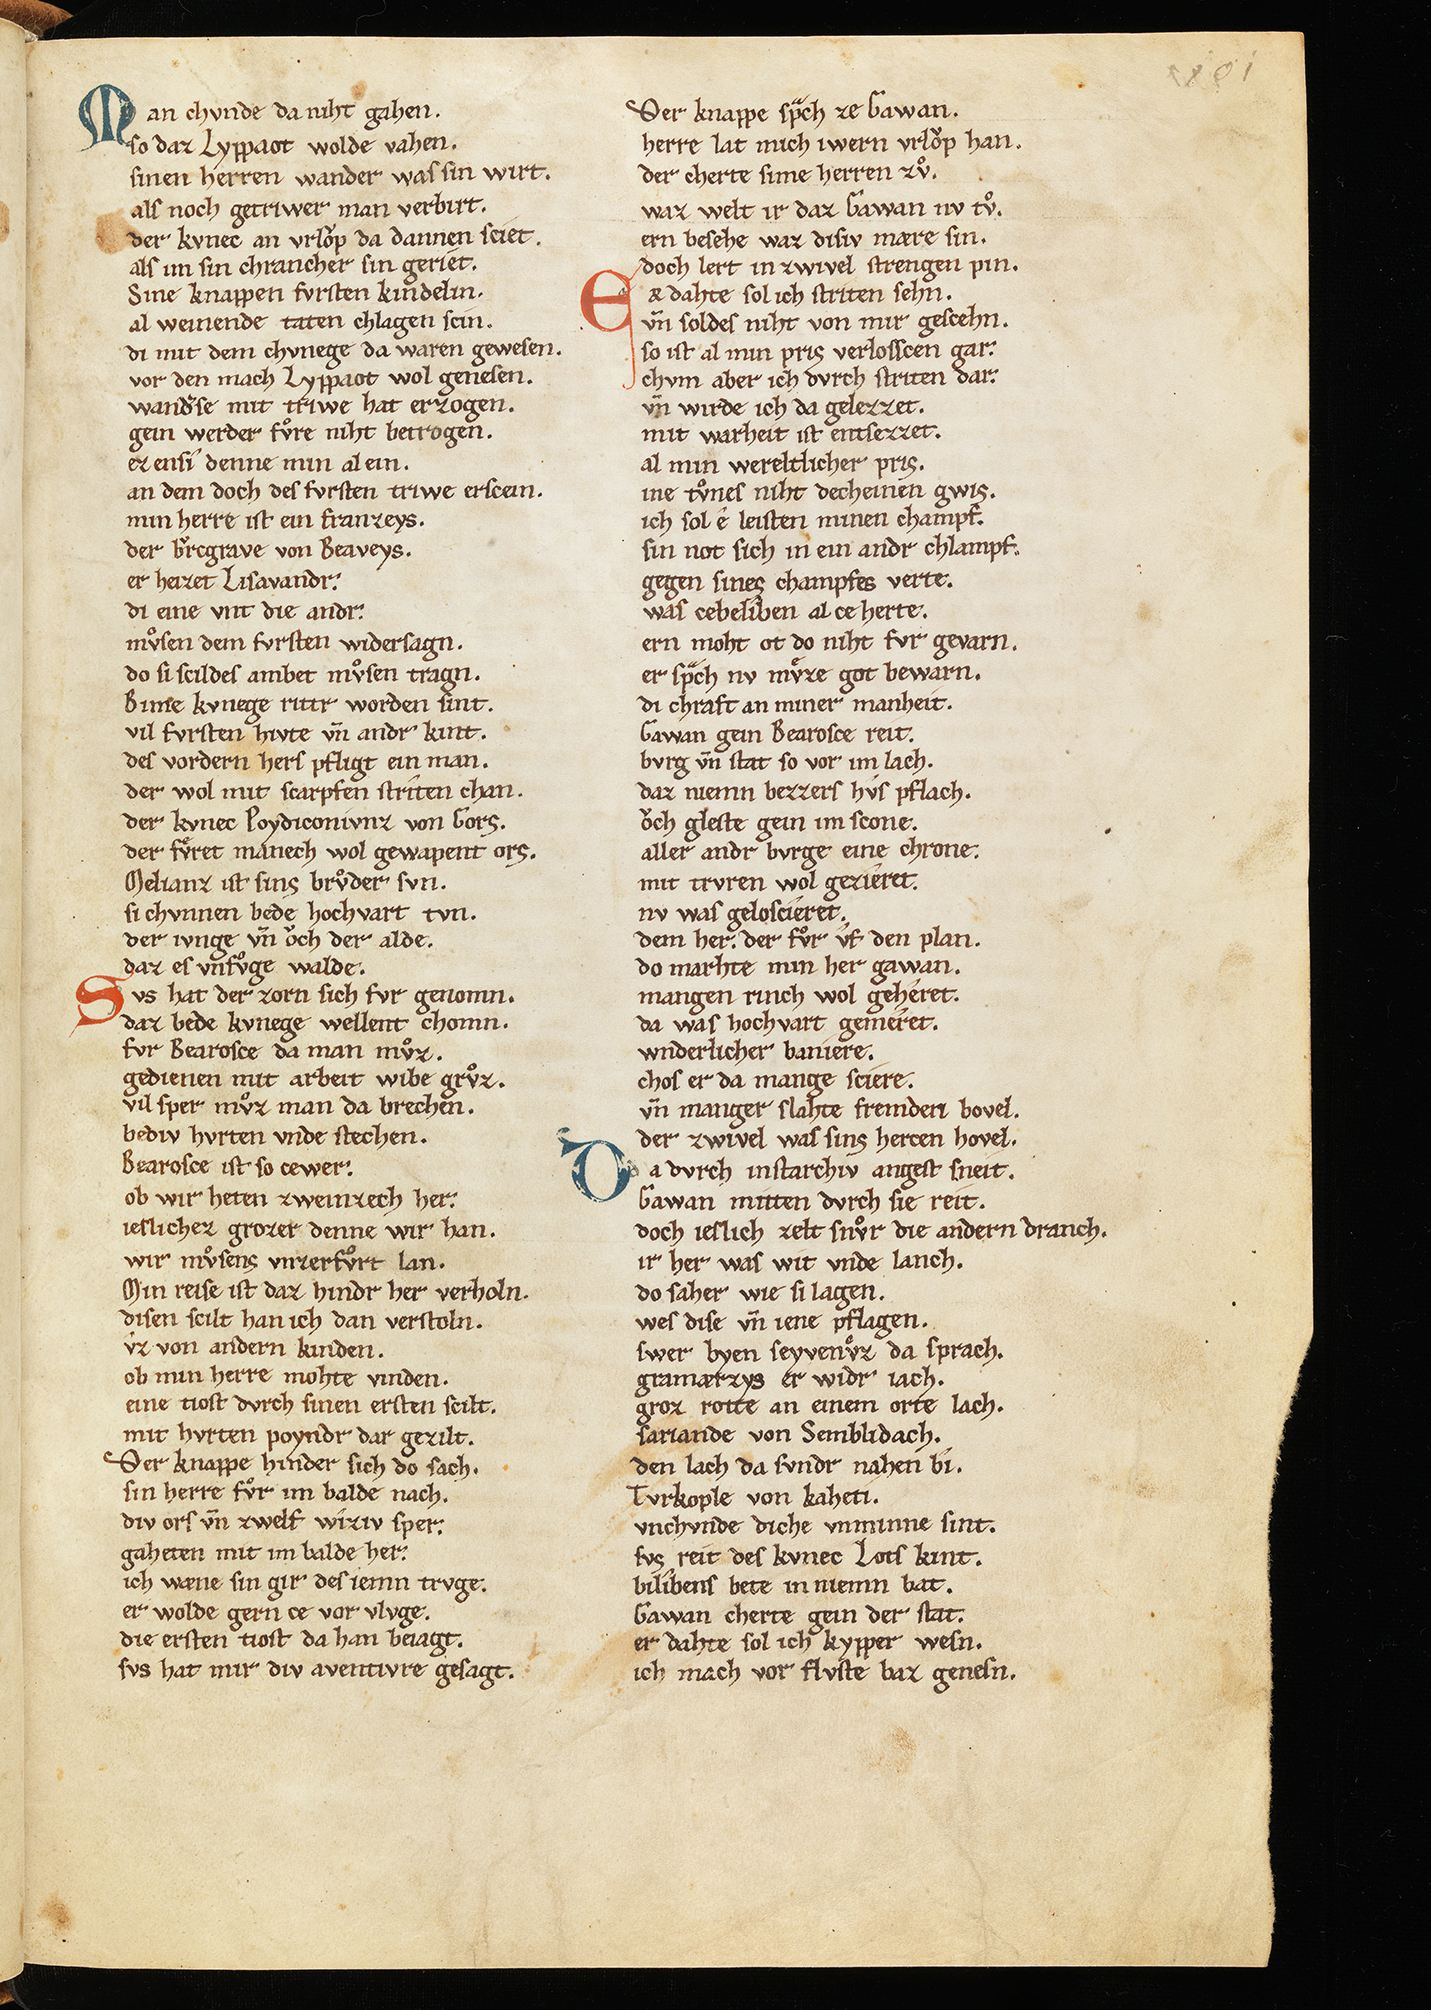 Man chvnde da niht gahen.
so daz Lyppaot wolde vahen.
sinen herren wander was sin wirt.
als noch getriwer man verbirt.
der kvnec an vrlo̊p da dannen sciet.
als im sin chrancher sin geriet.
Sine knappen fvrsten kindelin.
al weinende taten chlagen scin.
di mit dem chvnege da waren gewesen.
vor den mach Lyppaot wol genesen.
wandˢse mit triwe hat erzogen.
gein werder fv̊re niht betrogen.
ez ensi denne min al ein.
an dem doch des fvrsten triwe erscein.
min herre ist ein franzeys.
der bv̊rcgrave von Beaveys.
er heizet Lisavandr.
di eine vnt die andr.
mv̊sen dem fvrsten widersagn.
do si scildes ambet mv̊sen tragn.
Bime kvnege rittr worden sint.
vil fvrsten hivte vn̄ andr kint.
des vordern hers pfligt ein man.
der wol mit scarpfen striten chan.
der kvnec Poydiconivnz von Gors.
der fv̊ret manech wol gewapent ors.
Melianz ist sins brv̊der svn.
si chvnnen bede hochvart tvn.
der ivnge vn̄ o̊ch der alde.
daz es vnfv̊ge walde.
Svs hat der zorn sich fvr genomn.
daz bede kvnege wellent chomn.
fvr Bearosce da man mv̊z.
gedienen mit arbeit wibe grv̊z.
vil sper mv̊z man da brechen.
bediv hvrten vnde stechen.
Bearosce ist so cewer.
ob wir heten zweinzech her.
ieslichez grozer denne wir han.
wir mv̊sens vnzerfv̊rt lan.
Min reise ist daz hindr her verholn.
disen scilt han ich dan verstoln.
vz von andern kinden.
ob min herre mohte vinden.
eine tiost dvrch sinen ersten scilt.
mit hvrten poyndr dar gezilt.
Der knappe hinder sich do sach.
sin herre fv̊r im balde nach.
div ors vn̄ zwelf wiziv sper.
gaheten mit im balde her.
ich wæne sin gir des iemn trvge.
er wolde gern ce vor vlvge.
die ersten tiost da han beiagt.
svs hat mir div aventivre gesagt.
Der knappe sp̄ch ze Gawan.
herre lat mich iwern vrlo̊p han.
der cherte sime herren zv̊.
waz welt ir daz Gawan nv tv̊.
ern besehe waz disiv mære sin.
doch lert in zwivel strengen pin.
Er dahte sol ich striten sehn.
vn̄ soldes niht von mir gescehn.
so ist al min pris verlosscen gar.
chvm aber ich dvrch striten dar.
vn̄ wirde ich da gelezzet.
mit warheit ist entsezzet.
al min wereltlicher pris.
ine tv̊nes niht decheinen gwis.
ich sol e leisten minen champf.
sin not sich in ein andr chlampf.
gegen sines champfes verte.
was cebeliben al ce herte.
ern moht ot do niht fvr gevarn.
er sp̄ch nv mv̊ze got bewarn.
di chraft an miner manheit.
Gawan gein Bearosce reit.
bvrg vn̄ stat so vor im lach.
daz niemn bezzers hvs pflach.
o̊ch gleste gein im scone.
aller andr bvrge eine chrone.
mit tvren wol gezieret.
nv was geloscieret.
dem her. der fv̊r vf den plan.
do marhte min her gawan.
mangen rinch wol geheret.
da was hochvart gemeret.
wnderlicher baniere.
chos er da mange sciere.
vn̄ manger slahte fremden bovel.
der zwivel was sins hercen hovel.
Da dvrch in starchiv angest sneit.
Gawan mitten dvrch sie reit.
doch ieslich zelt snv̊r die andern dranch.
ir her was wit vnde lanch.
do saher wie si lagen.
wes dise vn̄ iene pflagen.
swer byen seyvenv̊z da sprach.
gramærzys er widr iach.
groz rotte an einem orte lach.
sariande von Semblidach.
den lach da svndr nahen bi.
Tvrkople von kaheti.
vnchvnde diche vnminne sint.
svs reit des kvnec Lots kint.
bilibens bete in niemn bat.
Gawan cherte gein der stat.
er dahte sol ich kypper wesn.
ich mach vor flvste baz genesn.